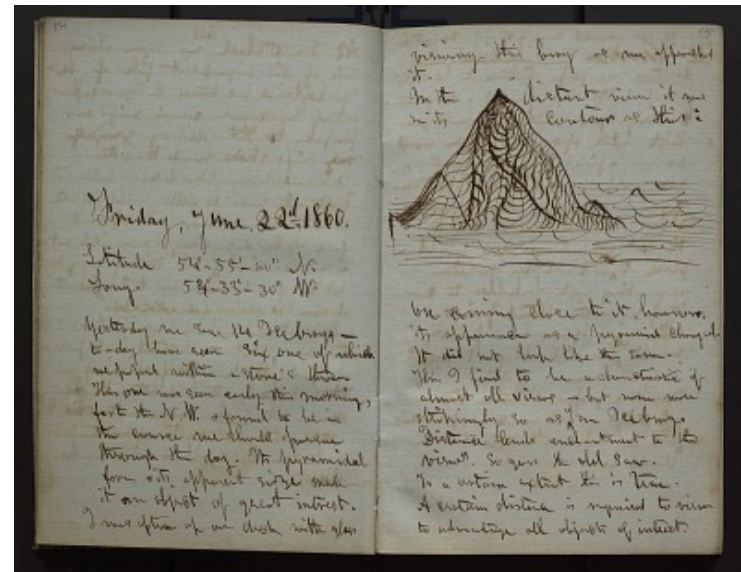 Friday, June, 22d 1860.
Latitude 54°-55'- N.
Long. 54°-33'-30" W.
Yesterday we saw Icebergs —
to-day have seen Six one of which
we passed within a stone's throw.
This one was seen early this morning,
far to the N.W. & found to be in
the course we should pursue
through the day. Its pyramidal
form & its apparent size made
it an object of great interest.
I was often up on deck with glass
viewing this berg as we approached
it.
In the distant view it was
in its contour as this:
On coming close to it, however,
its appearance as a pyramid changed.
It did not look like the same.
This I find to be characteristic of
almost all views — but none more
strikingly so as of an Iceberg.
Distance lends enchantment to the
view". So goes the old Saw.
To a certain extent this is true.
A certain distance is required to view
to advantage all objects of interest.